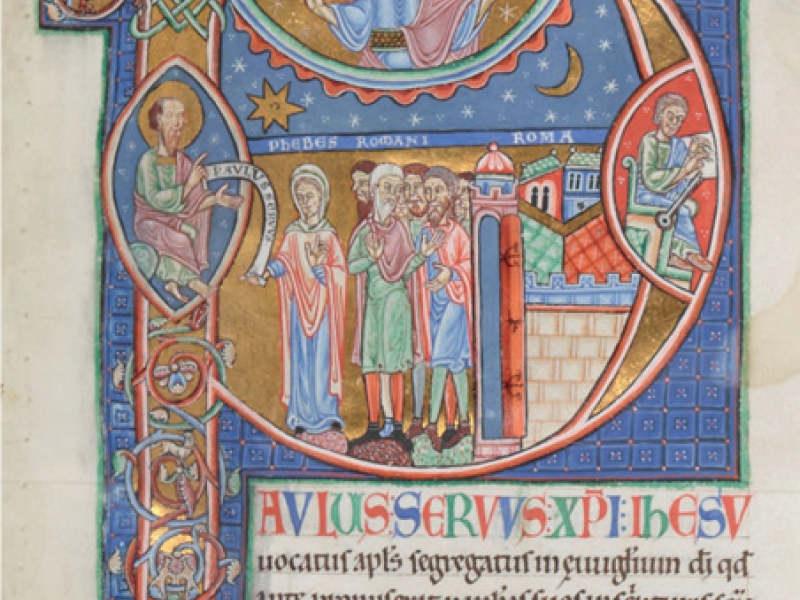 PHEBES ROMANI ROMA
PAVLVS SERVVS
AVLUS:SERVVS:XP̄I:IhESV
uocatus apłs segregatus in euuglium di qđ